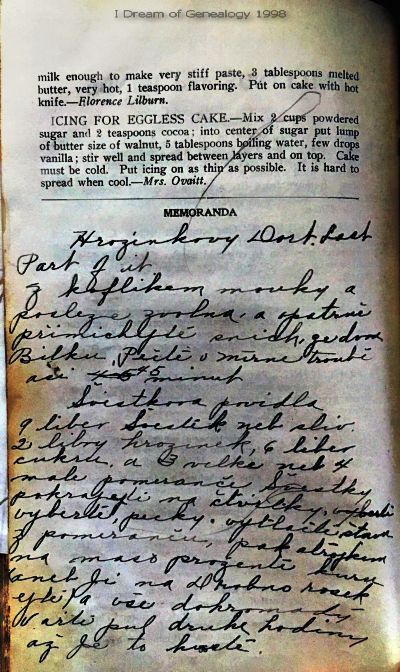 I Dream of Genealogy 1998
milk enough to make very stiff paste, 3 tablespoons melted
butter, very hot, 1 teaspoon flavoring. Put on cake with hot
knife.—Florence Lilburn.
ICING FOR EGGLESS CAKE.—Mix 2 cups powdered
sugar and 2 teaspoons cocoa; into center of sugar put lump
of butter size of walnut, 5 tablespoons boiling water, few drops
vanilla; stir well and spread between layers and on top. Cake
must be cold. Put icing on as thin as possible. It is hard to
spread when cool.—Mrs. Ovaitt.
MEMORANDA
Hrozinkovy Dort. Last
Part of it
z koflikem mouky a
posleze zvolna, a opatrně
přimichejtě snich, ze dvou
Bilku. Pečtě v mirne troubě
asi 45 minut
Švestkova povidla
9 liber Švestek neb sliv.
2 libry hrozinek, 6 liber
cukru, a 3 velke neb 4
male pomeranče. Švestky
pokrajejti na čtvrtky,
vyberte pecky. vytlačti štavu
z pomeranču, pak strojkem
na maso prožente kuru
aneb ji na Drobno rosek
ejte, a vše dohromady
Varte pul druhe hodiny
až je to huste.